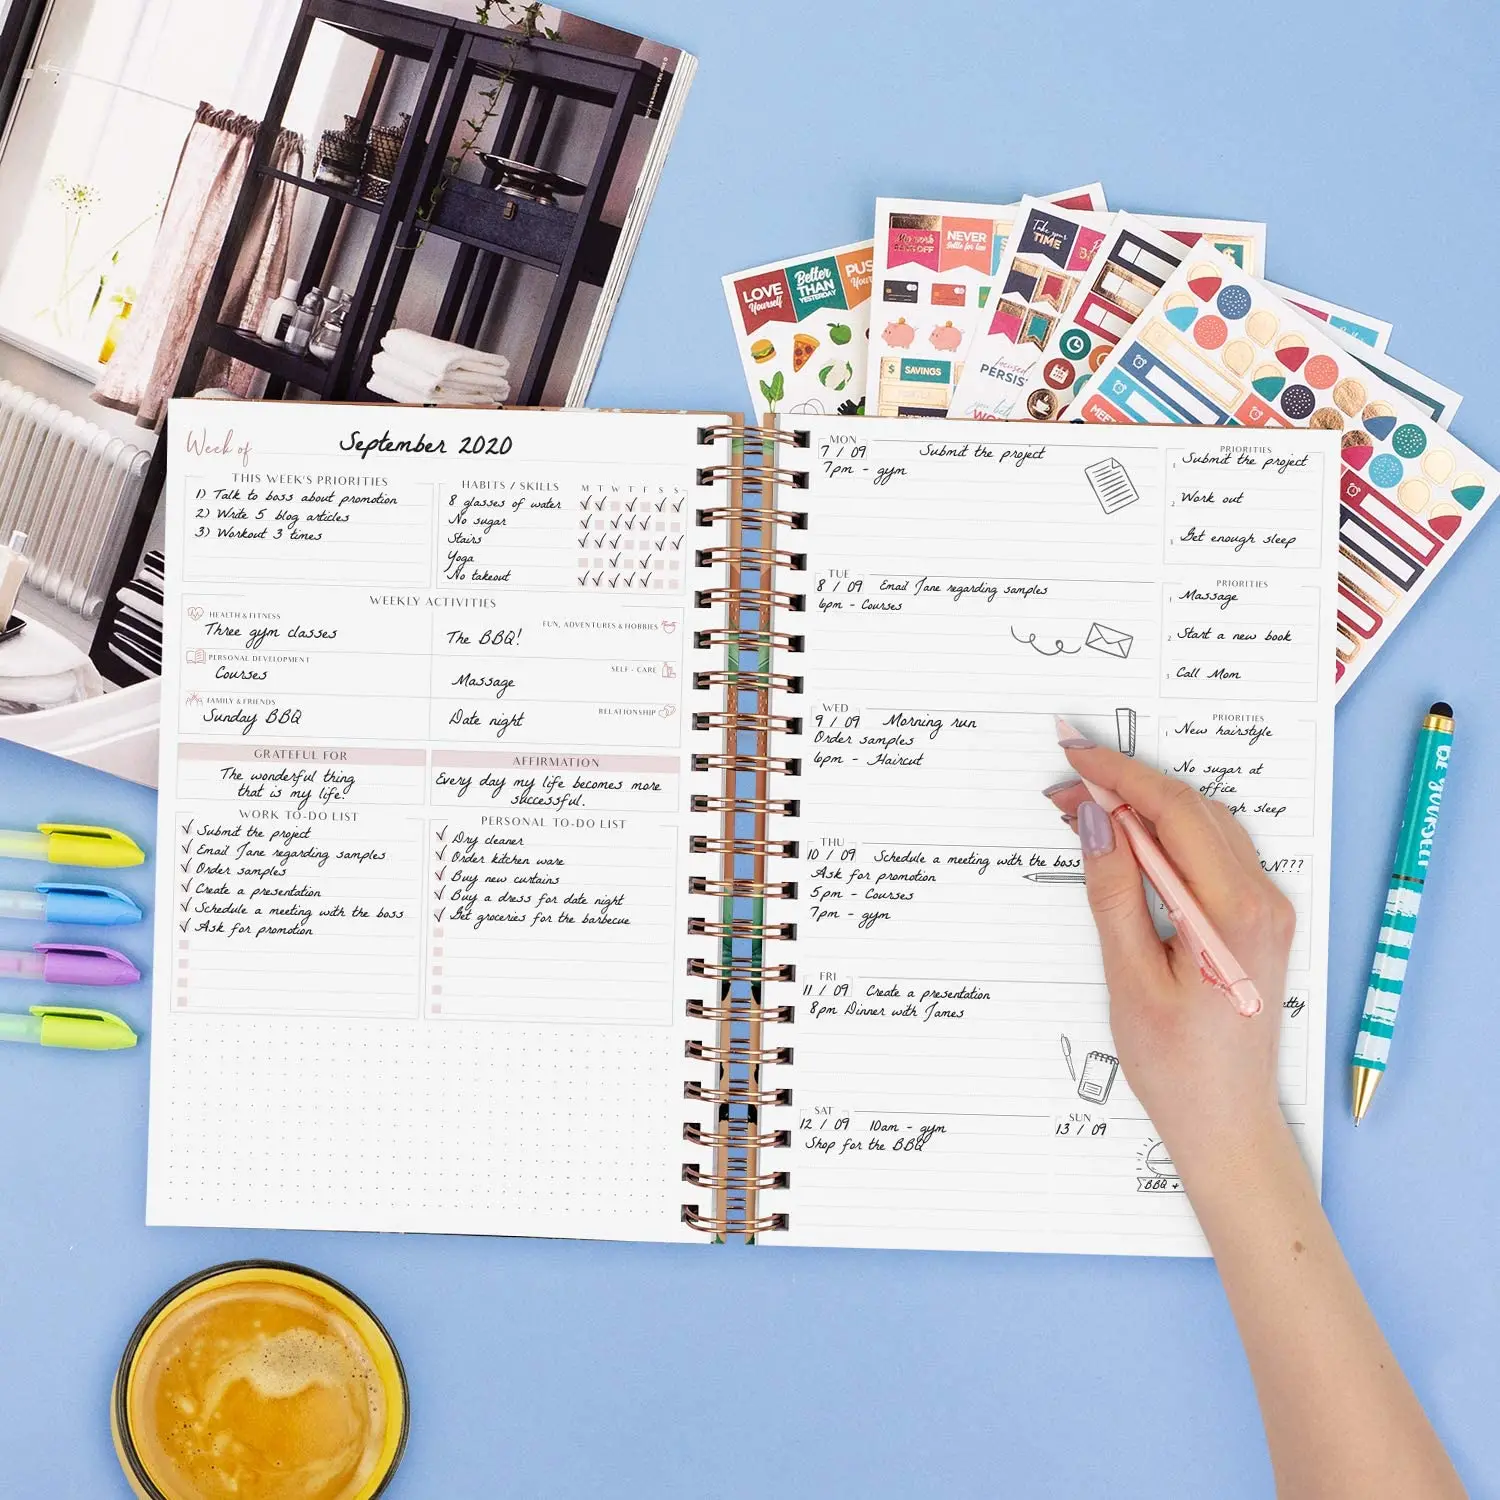 LOVE
Yourself
Better
THAN
YESTERDAY
PUS
NEVER
Settle for less
Take your
TIME
$ SAVINGS
focused
PERSIS
Week of
September 2020
THIS WEEK'S PRIORITIES
1) Talk to boss about promotion
2) Write 5 blog articles
3) Workout 3 times
HABITS / SKILLS
M T W T F S S
8 glasses of water
No sugar
Stairs
Yoga
No takeout
WEEKLY ACTIVITIES
HEALTH & FITNESS
Three gym classes
FUN, ADVENTURES & HOBBIES
The BBQ!
PERSONAL DEVELOPMENT
Courses
SELF - CARE
Massage
FAMILY & FRIENDS
Sunday BBQ
RELATIONSHIP
Date night
GRATEFUL FOR
The wonderful thing
that is my life!
AFFIRMATION
Every day my life becomes more
successful.
WORK TO-DO LIST
Submit the project
Email Jane regarding samples
Order samples
Create a presentation
Schedule a meeting with the boss
Ask for promotion
PERSONAL TO-DO LIST
Dry cleaner
Order kitchen ware
Buy new curtains
Buy a dress for date night
Get groceries for the barbecue
MON
7 / 09 Submit the project
7pm - gym
PRIORITIES
1. Submit the project
2. Work out
3. Get enough sleep
TUE
8 / 09 Email Jane regarding samples
6pm - Courses
PRIORITIES
1. Massage
2. Start a new book
3. Call Mom
WED
9 / 09 Morning run
Order samples
6pm - Haircut
PRIORITIES
1. New hairstyle
No sugar at
office
gh sleep
THU
10 / 09 Schedule a meeting with the boss
Ask for promotion
5pm - Courses
7pm - gym
ON???
2
FRI
11 / 09 Create a presentation
8pm Dinner with James
etty
SAT
12 / 09 10am - gym
Shop for the BBQ
SUN
13 / 09
BBQ +
BE YOURSELF